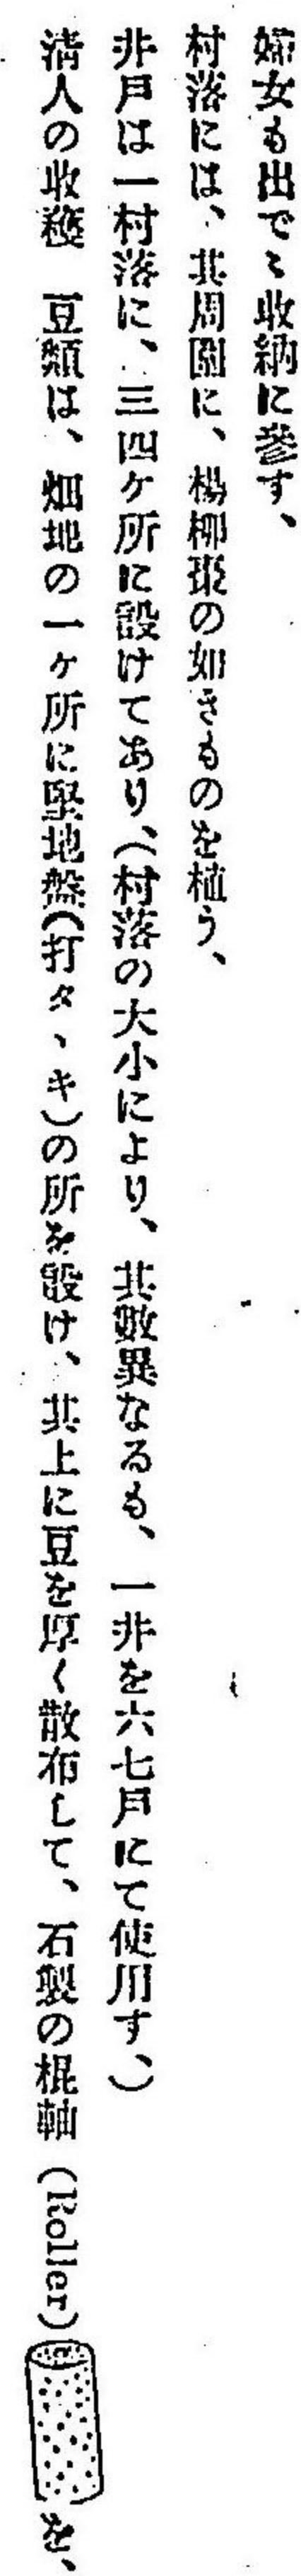 婦女も出でゝ收納に參す、
村落には、其周圍に、楊柳棗の如きものを植う、
井戸は一村落に、三四ケ所に設けてあり、(村落の大小により、其數異なるも、一井を六七戸にて使用す、)
淸人の收穫　豆類は、畑地の一ケ所に堅地盤(打タヽキ)の所を設け、其上に豆を厚く散布して、石製の棍軸(Roller)を、